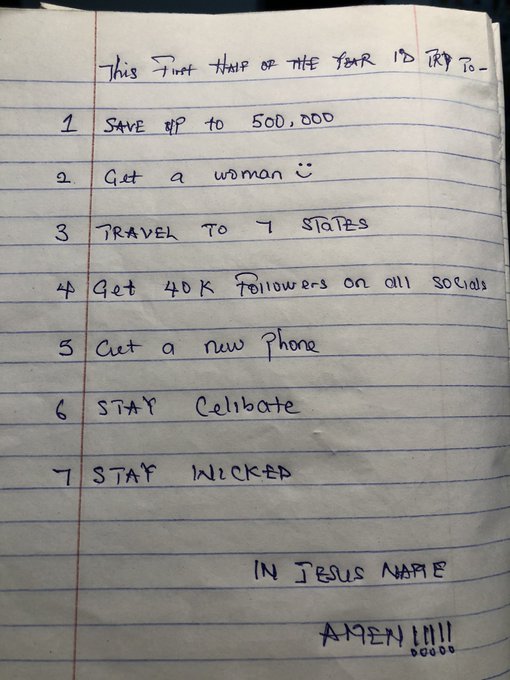 This First HALF OF THE YEAR I'D TRY To-
1 SAVE UP to 500,000
2 Get a woman ü
3 TRAVEL TO 7 STaTES
4 Get 40K Followers on all socials
5 Get a new phone
6 STAY Celibate
7 STAY WICKED
IN JESUS NAME
AMEN!!!!!